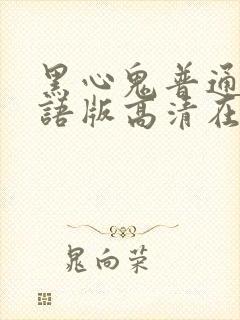 黑心鬼普通
語版高清在
晁向荣